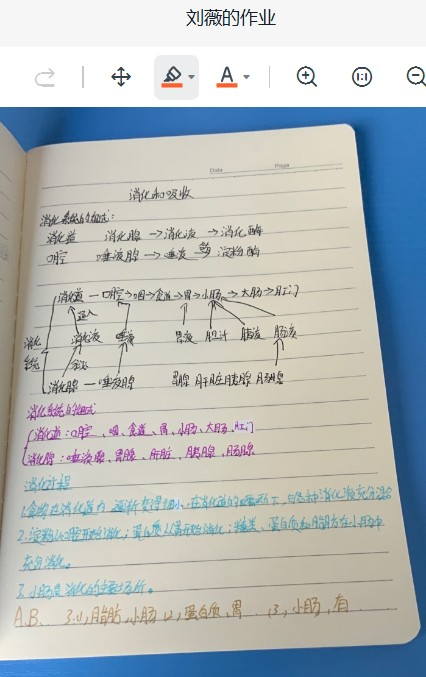 刘薇的作业
A
1:1
Date
Page
消化和吸收
消化系统的组成:
消化道 消化腺 → 消化液 → 消化酶
口腔 唾液腺 → 唾液 → 淀粉酶
消化道 — 口腔 → 咽 → 食道 → 胃 → 小肠 → 大肠 → 肛门
进入
消化液 唾液 胃液 胆汁 胰液 肠液
消化
系统
消化腺 — 唾液腺 胃腺 肝脏 胰腺 肠腺
消化系统的组成
消化道:口腔、咽、食道、胃、小肠、大肠、肛门
消化腺:唾液腺、胃腺、肝脏、胰腺、肠腺
消化过程
1.食物在消化道内 逐渐变得细小,在消化道的 下,与各种消化液充分混合
2.淀粉从口腔开始消化;蛋白质从胃开始消化;糖类、蛋白质和脂肪在小肠中
充分消化。
3.小肠是消化的主要场所。
A.B. 3.(1)脂肪,小肠 (2)蛋白质,胃 (3)小肠,有